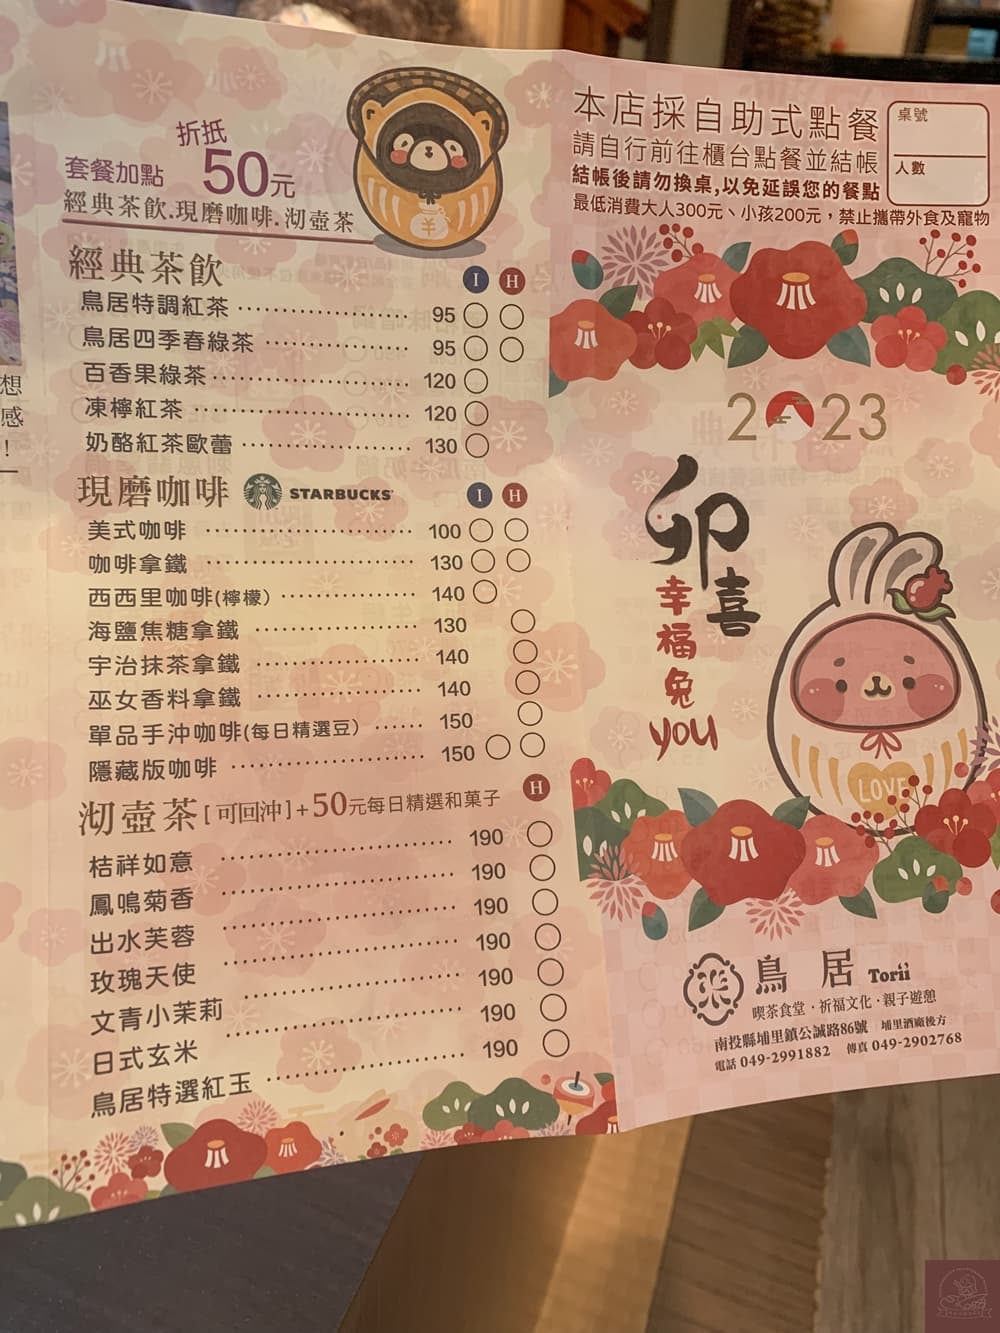 想
感
!
折抵
套餐加點 50元
經典茶飲.現磨咖啡.沏壺茶
羊
經典茶飲 I H
鳥居特調紅茶 95
鳥居四季春綠茶 95
百香果綠茶 120
凍檸紅茶 120
奶酪紅茶歐蕾 130
現磨咖啡 STARBUCKS I H
美式咖啡 100
咖啡拿鐵 130
西西里咖啡(檸檬) 140
海鹽焦糖拿鐵 130
宇治抹茶拿鐵 140
巫女香料拿鐵 140
單品手沖咖啡(每日精選豆) 150
隱藏版咖啡 150
沏壺茶[可回沖]+50元每日精選和菓子 H
桔祥如意 190
鳳鳴菊香 190
出水芙蓉 190
玫瑰天使 190
文青小茉莉 190
日式玄米 190
鳥居特選紅玉 190
本店採自助式點餐
請自行前往櫃台點餐並結帳
結帳後請勿換桌,以免延誤您的餐點
最低消費大人300元、小孩200元，禁止攜帶外食及寵物
桌號
人數
2023
卯喜
幸福兔YOU
LOVE
鳥居 Torii
喫茶食堂·祈福文化·親子遊憩
南投縣埔里鎮公誠路86號 | 埔里酒廠後方
電話 049-2991882 傳真 049-2902768